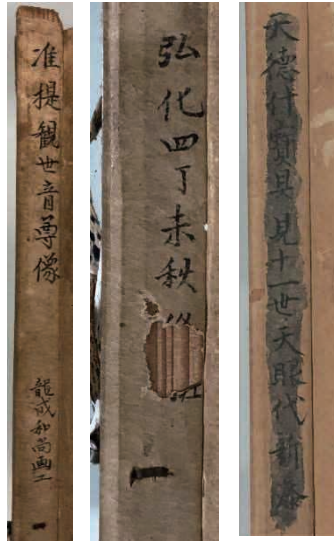 准提観世音尊像
龍成和尚画二
弘化四丁未秋修
天德什寶具見十一世天眼代新添